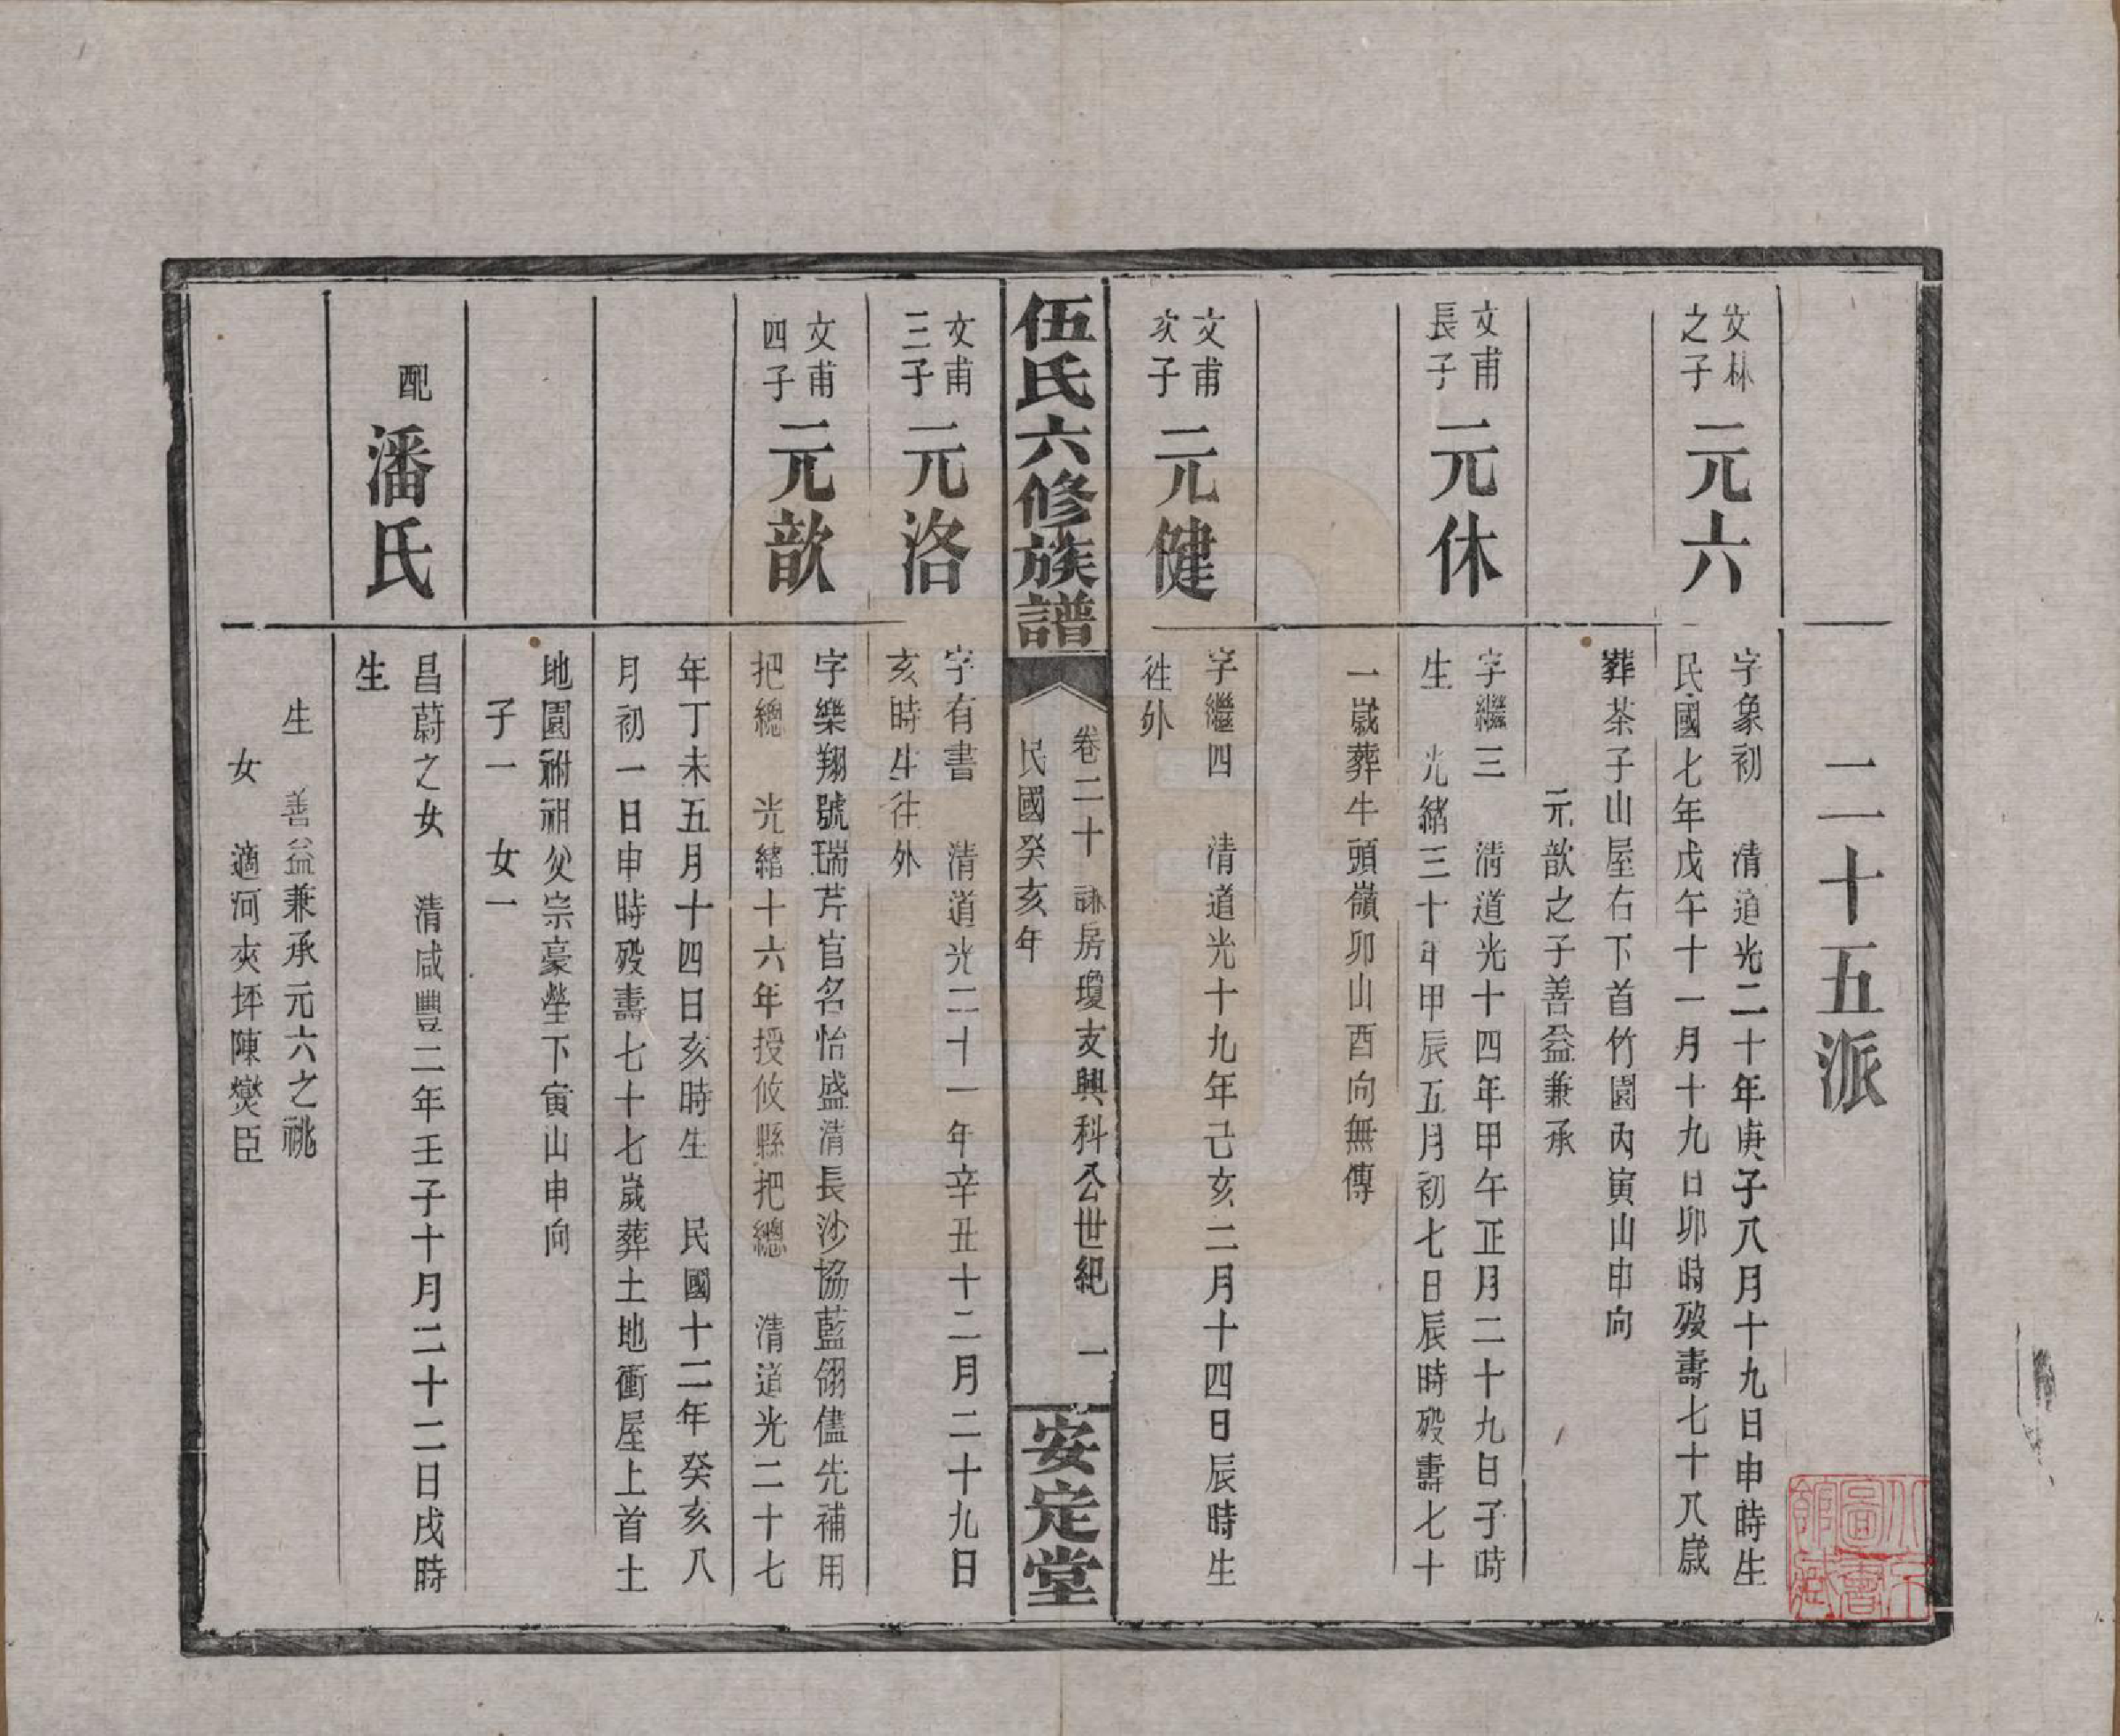 二十五派
文林之子
元六
字象初　清道光二十年庚子八月十九日申時生
民國七年戊午十一月十九日卯時殁壽七十八歲
葬茶子山屋右下首竹園內寅山申向
元歆之子善益兼承
文甫長子
元休
字繼三　清道光十四年甲午正月二十九日子時
生　光緒三十年甲辰五月初七日辰時殁壽七十
一歲葬牛頭嶺卯山酉向無傳
文甫次子
元健
字繼四　清道光十九年己亥二月十四日辰時生
徃外
伍氏六修族譜
卷二十　詠房瓊支興科公世紀　一
民國癸亥年
安定堂
文甫三子
元洛
字有書　清道光二十一年辛丑十二月二十九日
亥時生徃外
文甫四子
元歆
字樂翔號瑞芹官名怡盛清長沙協藍翎儘先補用
把總　光緒十六年授攸縣把總　清道光二十七
年丁未五月十四日亥時生　民國十二年癸亥八
月初一日申時殁壽七十七歲葬土地衝屋上首土
地園祔祖父宗豪塋下寅山申向
子一　女一
配
潘氏
昌蔚之女　清咸豐二年壬子十月二十二日戌時
生
生　善益兼承元六之祧
女　適河夾坪陳爕臣